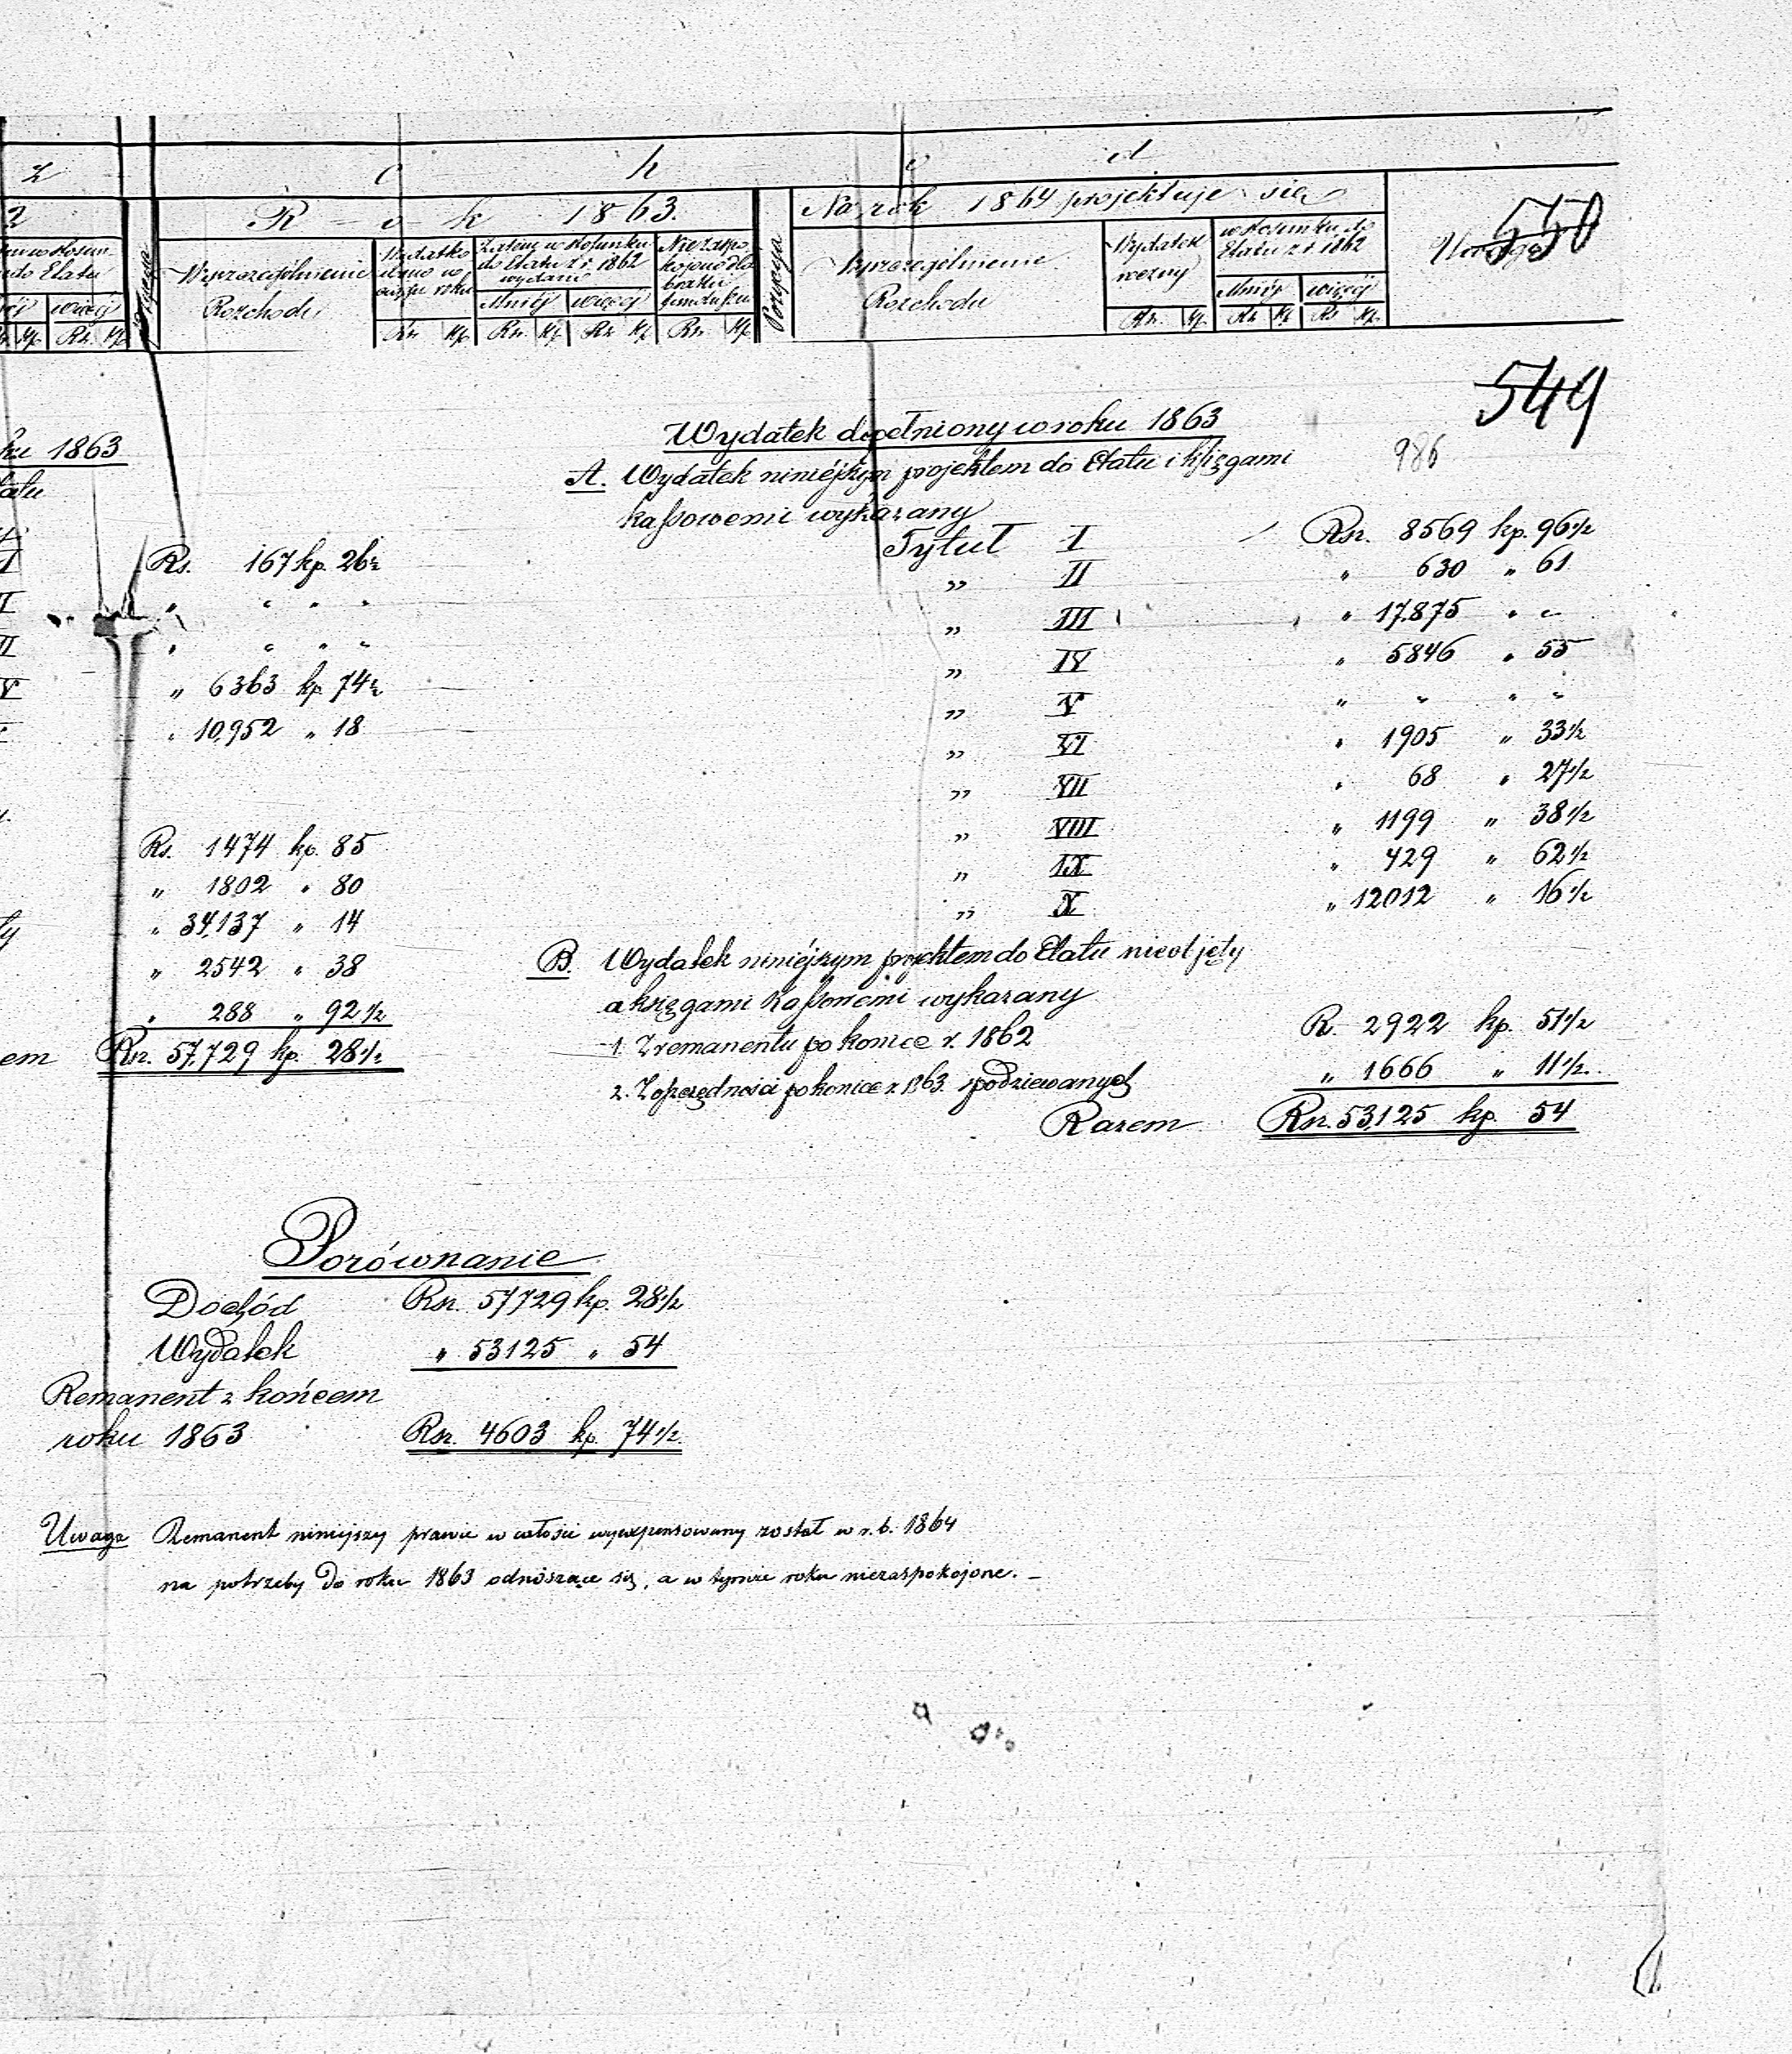 z c h ó d
2 R o k 1863. Na rok 1864 projektuje się
550
do Etatu
Pozycya
Wyszczególnienie Rozchodu
Wydatko
Zatem w stosunku do Etatu z r. 1862 wydano
Mniéj więcéj
Pozycya
Wyszczególnienie Rozchodu
Wydatek roczny
w stosunku do Etatu z r. 1862
Mniéj więcéj
Uwaga
więcéj
Rs. Kp. Rsr. Kp. Rsr. Kp. Rs. Kp. Rsr. Kp. Rsr. Kp. Rs. Kp. Rs. Kp.
549
986
ku 1863
Rs. 167 kp. 26½
" " " "
" " " "
" 6363 kp 74½
" 10,952 " 18
Rs. 1474 kp. 85
" 1802 " 80
" 34,137 " 14
" 2542 " 38
" 288 " 92½
em Rsr. 57,729 kp. 28½
Wydatek dopełniony w roku 1863
A. Wydatek niniéjszym projektem do Etatu i księgami
kassowemi wykazany
Tytuł I Rsr. 8569 kp. 96½
" II " 630 " 61
" III " 17,875 " "
" IV " 5846 " 55
" V " " " "
" VI " 1905 " 33½
" VII " 68 " 27½
" VIII " 1199 " 38½
" IX " 429 " 62½
" X " 12012 " 16½
B. Wydatek niniéjszym projektem do Etatu nieobjęty
a księgami kassowemi wykazany
1. Z remanentu po końce r. 1862 R. 2922 kp. 51½
2. Z oszczędności po końce r. 1863 spodziewanych " 1666 " 11½
Razem Rsr. 53,125 kp. 54
Porównanie
Dochód Rsr. 57729 kp. 28½
Wydatek " 53125 " 54
Remanent z końcem
roku 1863 Rsr. 4603 kp. 74½
Uwaga Remanent niniejszy prawie w całości wyexpensowany został w r. b. 1864
na potrzeby do roku 1863 odnoszące się, a w tymże roku niezaspokojone. –